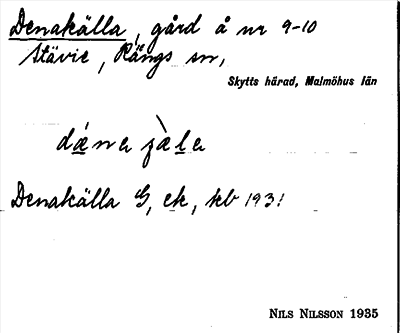 Denakälla, gård å nr 9-10
Stävie, Kängs sn,
Skytts härad, Malmöhus län
Denakälla G, ek, kb 1931
NILS NILSSON 1935